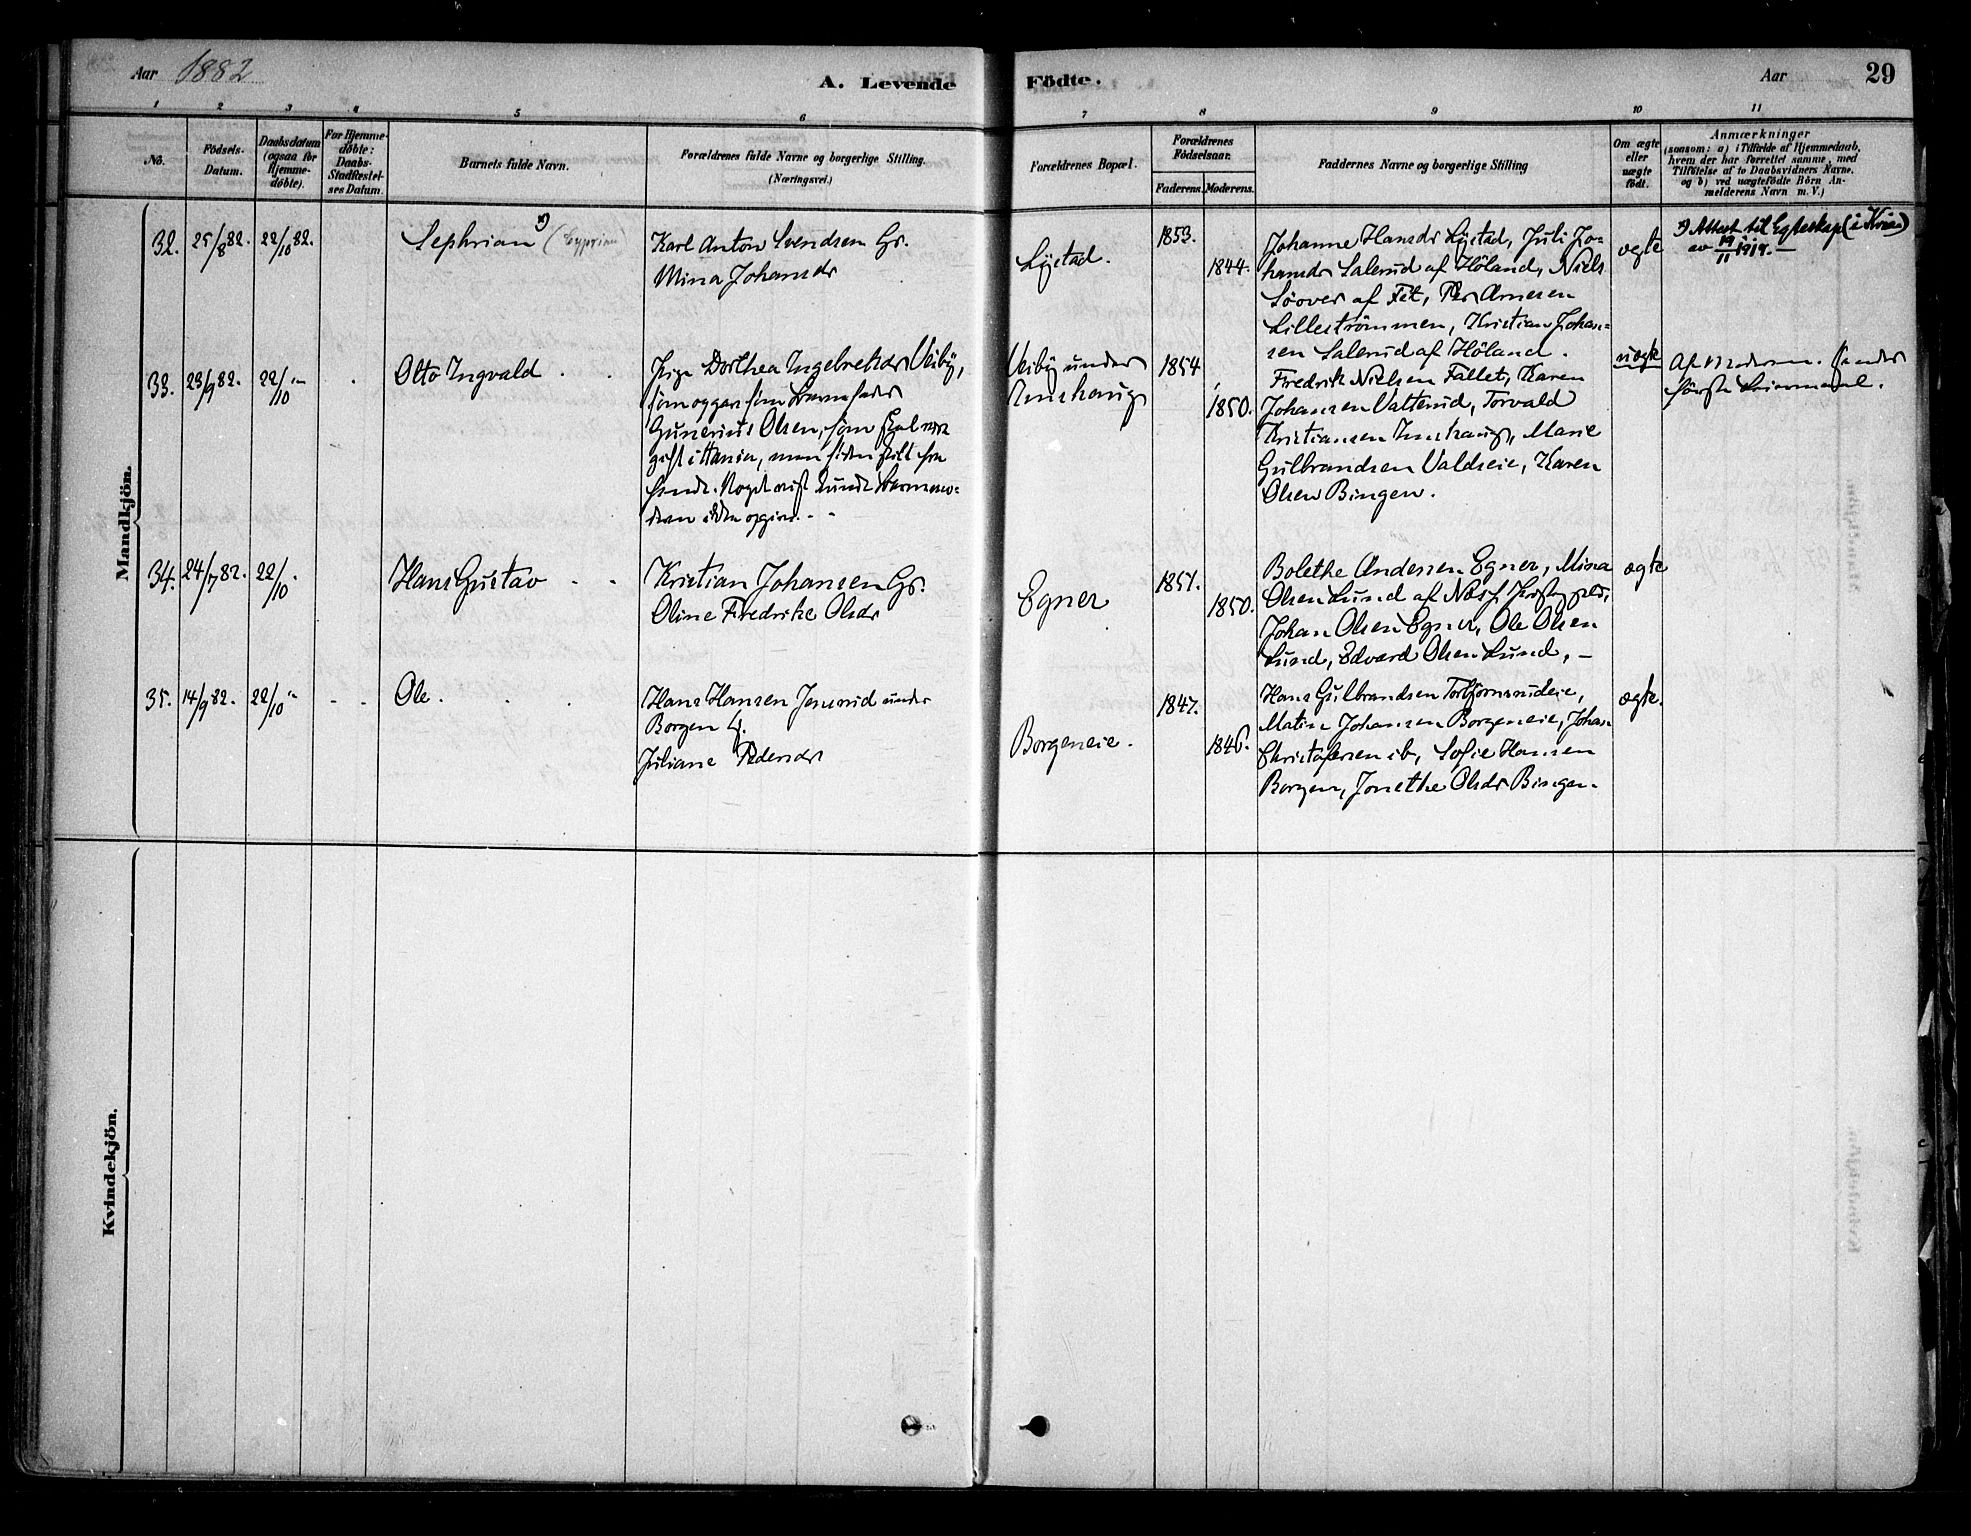 Aar 1882
A. Levende
Födte.
Aar
29
1 2 3 4 5 6 7 8 9 10 11
No.
Födsels-
Datum.
Daabsdatum
(ogsaa for
Hjemme-
döbte).
For Hjemme-
döbte:
Daabs-
Stadfæstel-
ses Datum.
Barnets fulde Navn.
Forældrenes fulde Navne og borgerlige Stilling.
(Næringsvei.)
Forældrenes Bopæl.
Forældrenes
Födselsaar.
Faderens. Moderens.
Faddernes Navne og borgerlige Stilling
Om ægte
eller
uægte
født.
Anmærkninger
(saasom: a) i Tilfælde af Hjemmedaab,
hvem der har forrettet samme, med
Tilföielse af to Daabsvidners Navne,
og b) ved uægtefödte Börn An-
melderens Navn m. V.)
Mandkjön.
32. 25/8 82. 22/10 82.
Sephrian (Cyprian)
Karl Anton Svendsen Gr.
Mina Johansdr
Lystad.
1853.
1844.
Johanne Hansdr Lystad, Juli Jo-
hansdr Salerud af Höland, Niels
af Fet, Per Arnesen
Lilleströmmen, Kristian Johan-
sen Salerud af Höland.
ægte
Attest til Egteskap (i Kria)
av 19/11 1919. —
33. 23/9 82. 22/10 "
Otto Ingvald
Pige Dorthea Ingebretsdr Veiby,
som opgav som Barnefader
Gunerius Olsen, som skal være
gift i men siden skilt fra
. Noget vist kunde Barnemo-
deren ikke opgive.
Veiby under
1854
1850.
Fredrik Nielsen Fallet, Karen
Johansen Valterud, Torvald
Kristiansen , Marie
Gulbrandsen Valdseie, Karen
Olsen Bingen.
uægte
Af Moderen.
första
34. 24/7 82. 22/10.
Hans Gustav
Kristian Johansen Gr.
Oline Fredrike Olsdr
Egner
1851.
1850.
Bolethe Andersen Egner, Mina
Olsen Lund af
Johan Olsen Egner, Ole Olsen
Lund, Edvard Olsen Lund, —
ægte
35. 14/9 82. 22/10 "
Ole.
Hans Hansen under
Borgen
Juliane Pedersdr
Borgeneie.
1847.
1846.
Hans Gulbrandsen Torbjörnsrudeie,
Matin Johansen Borgeneie, Johan
Christofersen ib, Sofie Hansen
Borgen, Jonethe Olsdr Bingen.
ægte.
Kvindekjön.